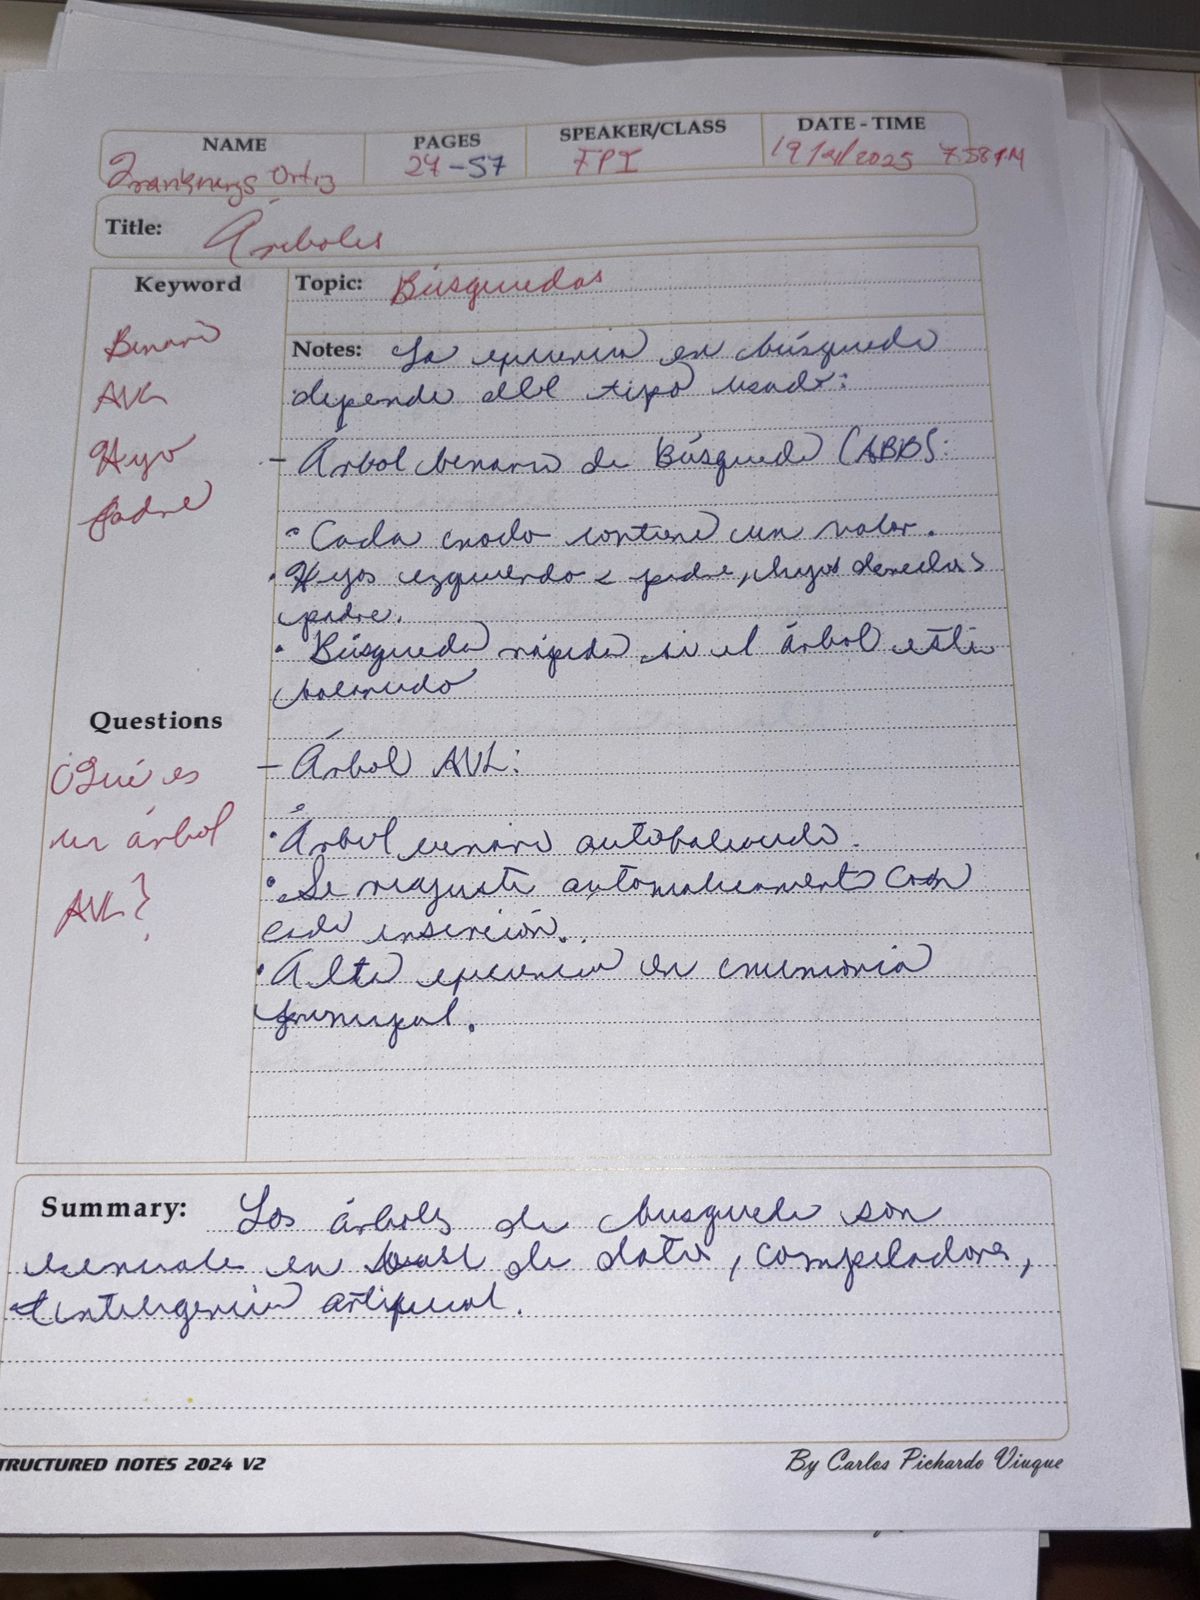 NAME
PAGES
SPEAKER/CLASS
DATE - TIME
Ortiz
24-57
FPI
7:58 PM
Title: Árboles
Keyword
Topic: Búsquedas
Binario
AVL
Hijo
Padre
Notes: La eficiencia en búsqueda
depende del tipo usado:
- Árbol binario de Búsqueda (ABB):
• Cada nodo contiene un valor.
• Hijos izquierdo < padre, hijos derechos >
padre.
• Búsqueda rápida si el árbol está
balanceado
Questions
¿Qué es
un árbol
AVL?
- Árbol AVL:
• Árbol binario autobalanceado.
• Se reajusta automaticamente con
cada inserción.
• Alta eficiencia en memoria
principal.
Summary: Los árboles de busqueda son
esenciales en base de datos, compiladores,
inteligencia artificial.
TRUCTURED NOTES 2024 V2
By Carlos Pichardo Viuque